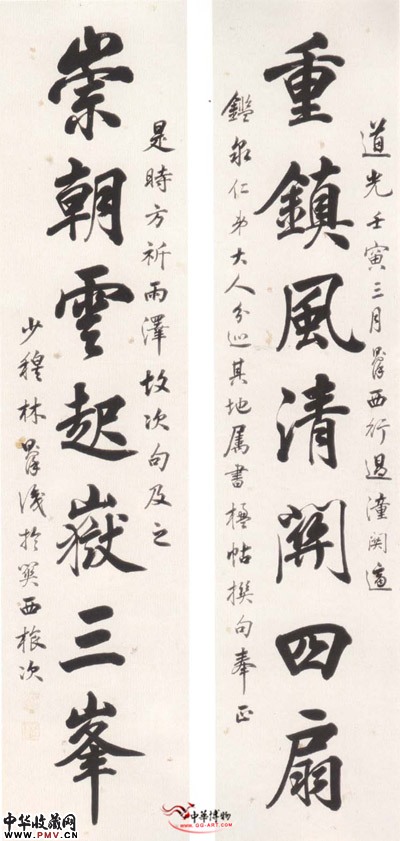 道光壬寅三月則徐西行過潼關適
重鎮風清關四扇
鑑泉仁弟大人分巡其地属書楹帖撰句奉正
是時方祈雨澤故次句及之
崇朝雲起嶽三峯
少穆林則徐識於關西旅次
中华收藏网
www.PMV.CN
中華博物
www.gg-art.com